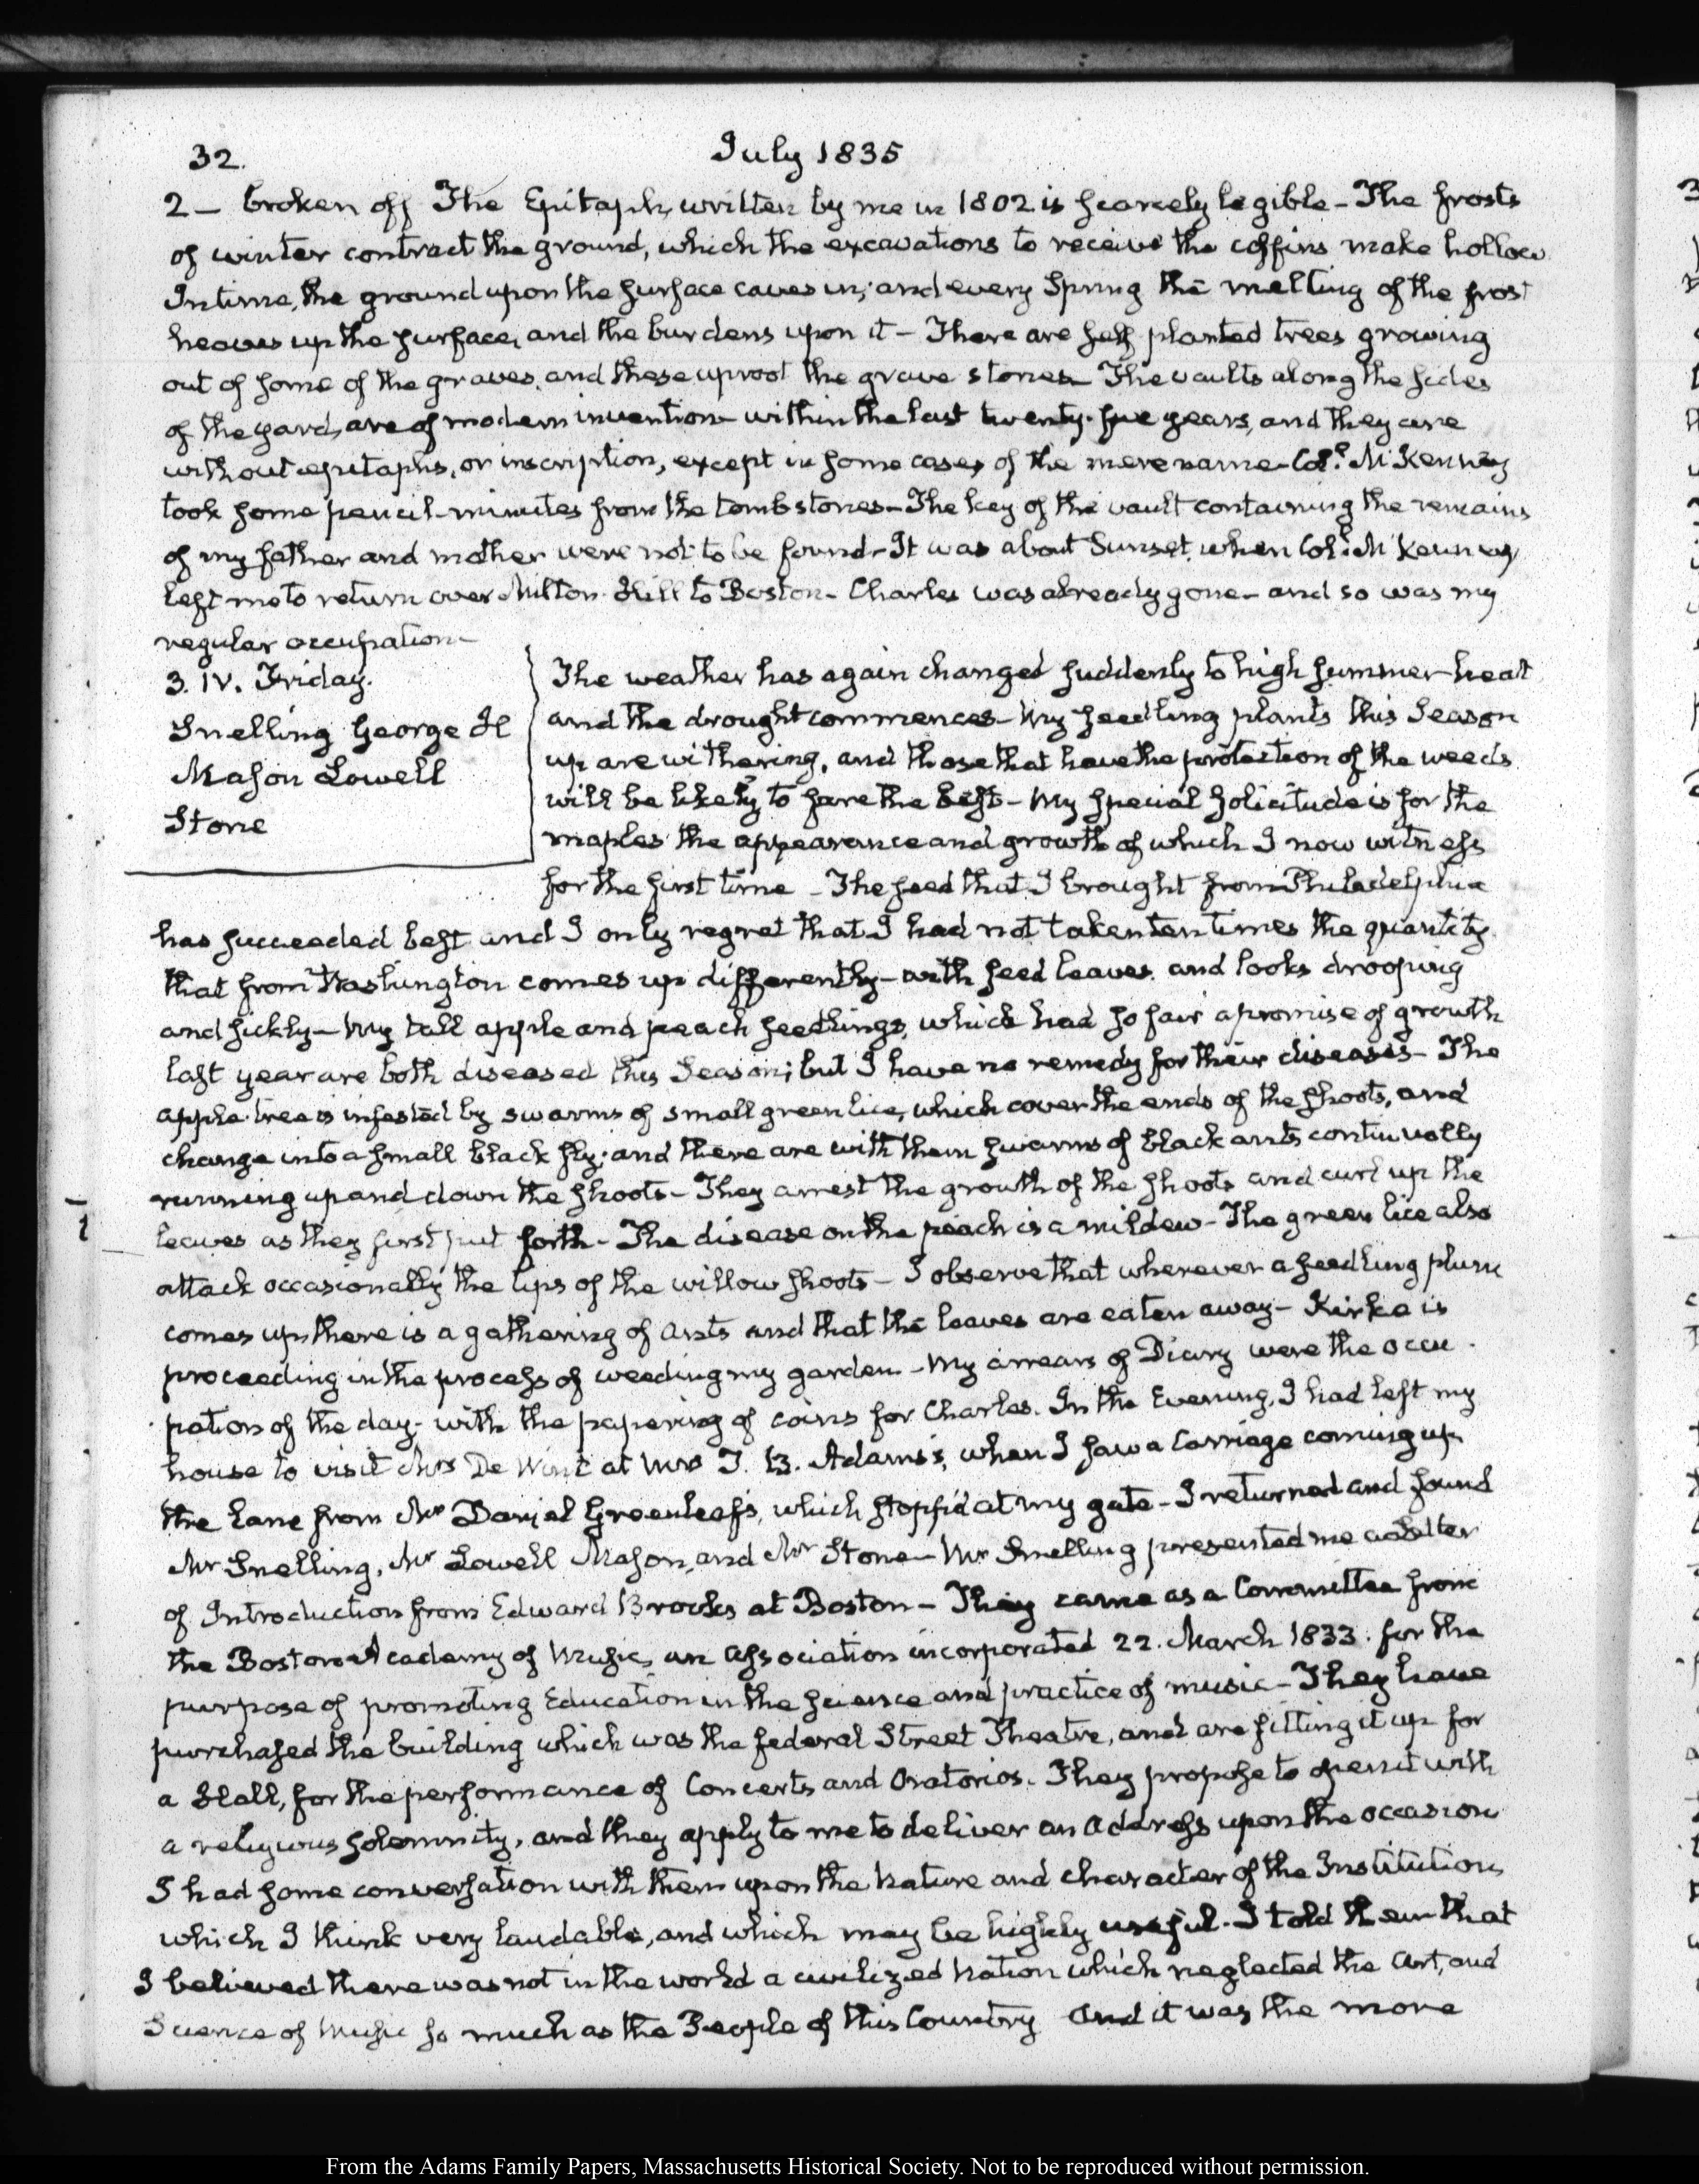 32.
July 1835
2 — broken off The Epitaph, written by me in 1802 is scarcely legible — The frosts
of winter contract the ground, which the excavations to receive the coffins make hollow
In time, the ground upon the surface caves in; and every Spring the melting of the frost
heaves up the surface, and the burdens upon it — There are self planted trees growing
out of some of the graves, and these uproot the grave stones — The vaults along the sides
of the yard, are of modern invention within the last twenty-five years, and they are
without epitaphs, or inscription, except in some cases of the mere name — Col.l McKenney
took some pencil-minutes from the tombstones — The key of the vault containing the remains
of my father and mother were not to be found — It was about Sunset, when Col.l McKenney
left me to return over Milton Hill to Boston — Charles was already gone — and so was my
regular occupation —
3. IV. Friday.
Snelling George H
Mason Lowell
Stone
The weather has again changed suddenly to high summer-heat
and the drought commences — My seedling plants this Season
up are withering, and those that have the protection of the weeds
will be likely to fare the best — My special solicitude is for the
maples the appearance and growth of which I now witness
for the first time — The seed that I brought from Philadelphia
has succeeded best and I only regret that I had not taken ten times the quantity.
that from Washington comes up differently — with seed leaves and looks drooping
and sickly — My tall apple and peach seedlings, which had so fair a promise of growth
last year are both diseased this Season; but I have no remedy for their diseases — The
apple-tree is infested by swarms of small green lice, which cover the ends of the shoots, and
change into a small black fly; and there are with them swarms of black ants continually
running up and down the shoots — They arrest the growth of the shoots and curl up the
leaves as they first put forth — The disease on the peach is a mildew — The green lice also
attack occasionally the tips of the willow shoots — I observe that wherever a seedling plum
comes up there is a gathering of ants and that the leaves are eaten away — Kirke is
proceeding in the process of weeding my garden — My arrears of Diary were the occu-
pation of the day - with the papering of coins for Charles. In the Evening, I had left my
house to visit Mrs De Wint at Mrs T. B. Adams's, when I saw a Carriage coming up
the lane from Mr Daniel Greenleaf's, which stopp'd at my gate — I returned and found
Mr Snelling, Mr Lowell Mason, and Mr Stone — Mr Snelling presented me a Letter
of Introduction from Edward Brooks at Boston — They came as a Committee from
the Boston Academy of Music, an Association incorporated 22. March 1833. for the
purpose of promoting Education in the science and practice of music — They have
purchased the building which was the federal Street Theatre, and are fitting it up for
a Hall, for the performance of Concerts and Oratorios. They propose to open it with
a religious solemnity, and they apply to me to deliver an Address upon the occasion
I had some conversation with them upon the Nature and character of the Institution,
which I think very laudable, and which may be highly useful. I told them that
I believed there was not in the world a civilized Nation which neglected the Art, and
Science of Music so much as the People of this Country and it was the more
From the Adams Family Papers, Massachusetts Historical Society. Not to be reproduced without permission.